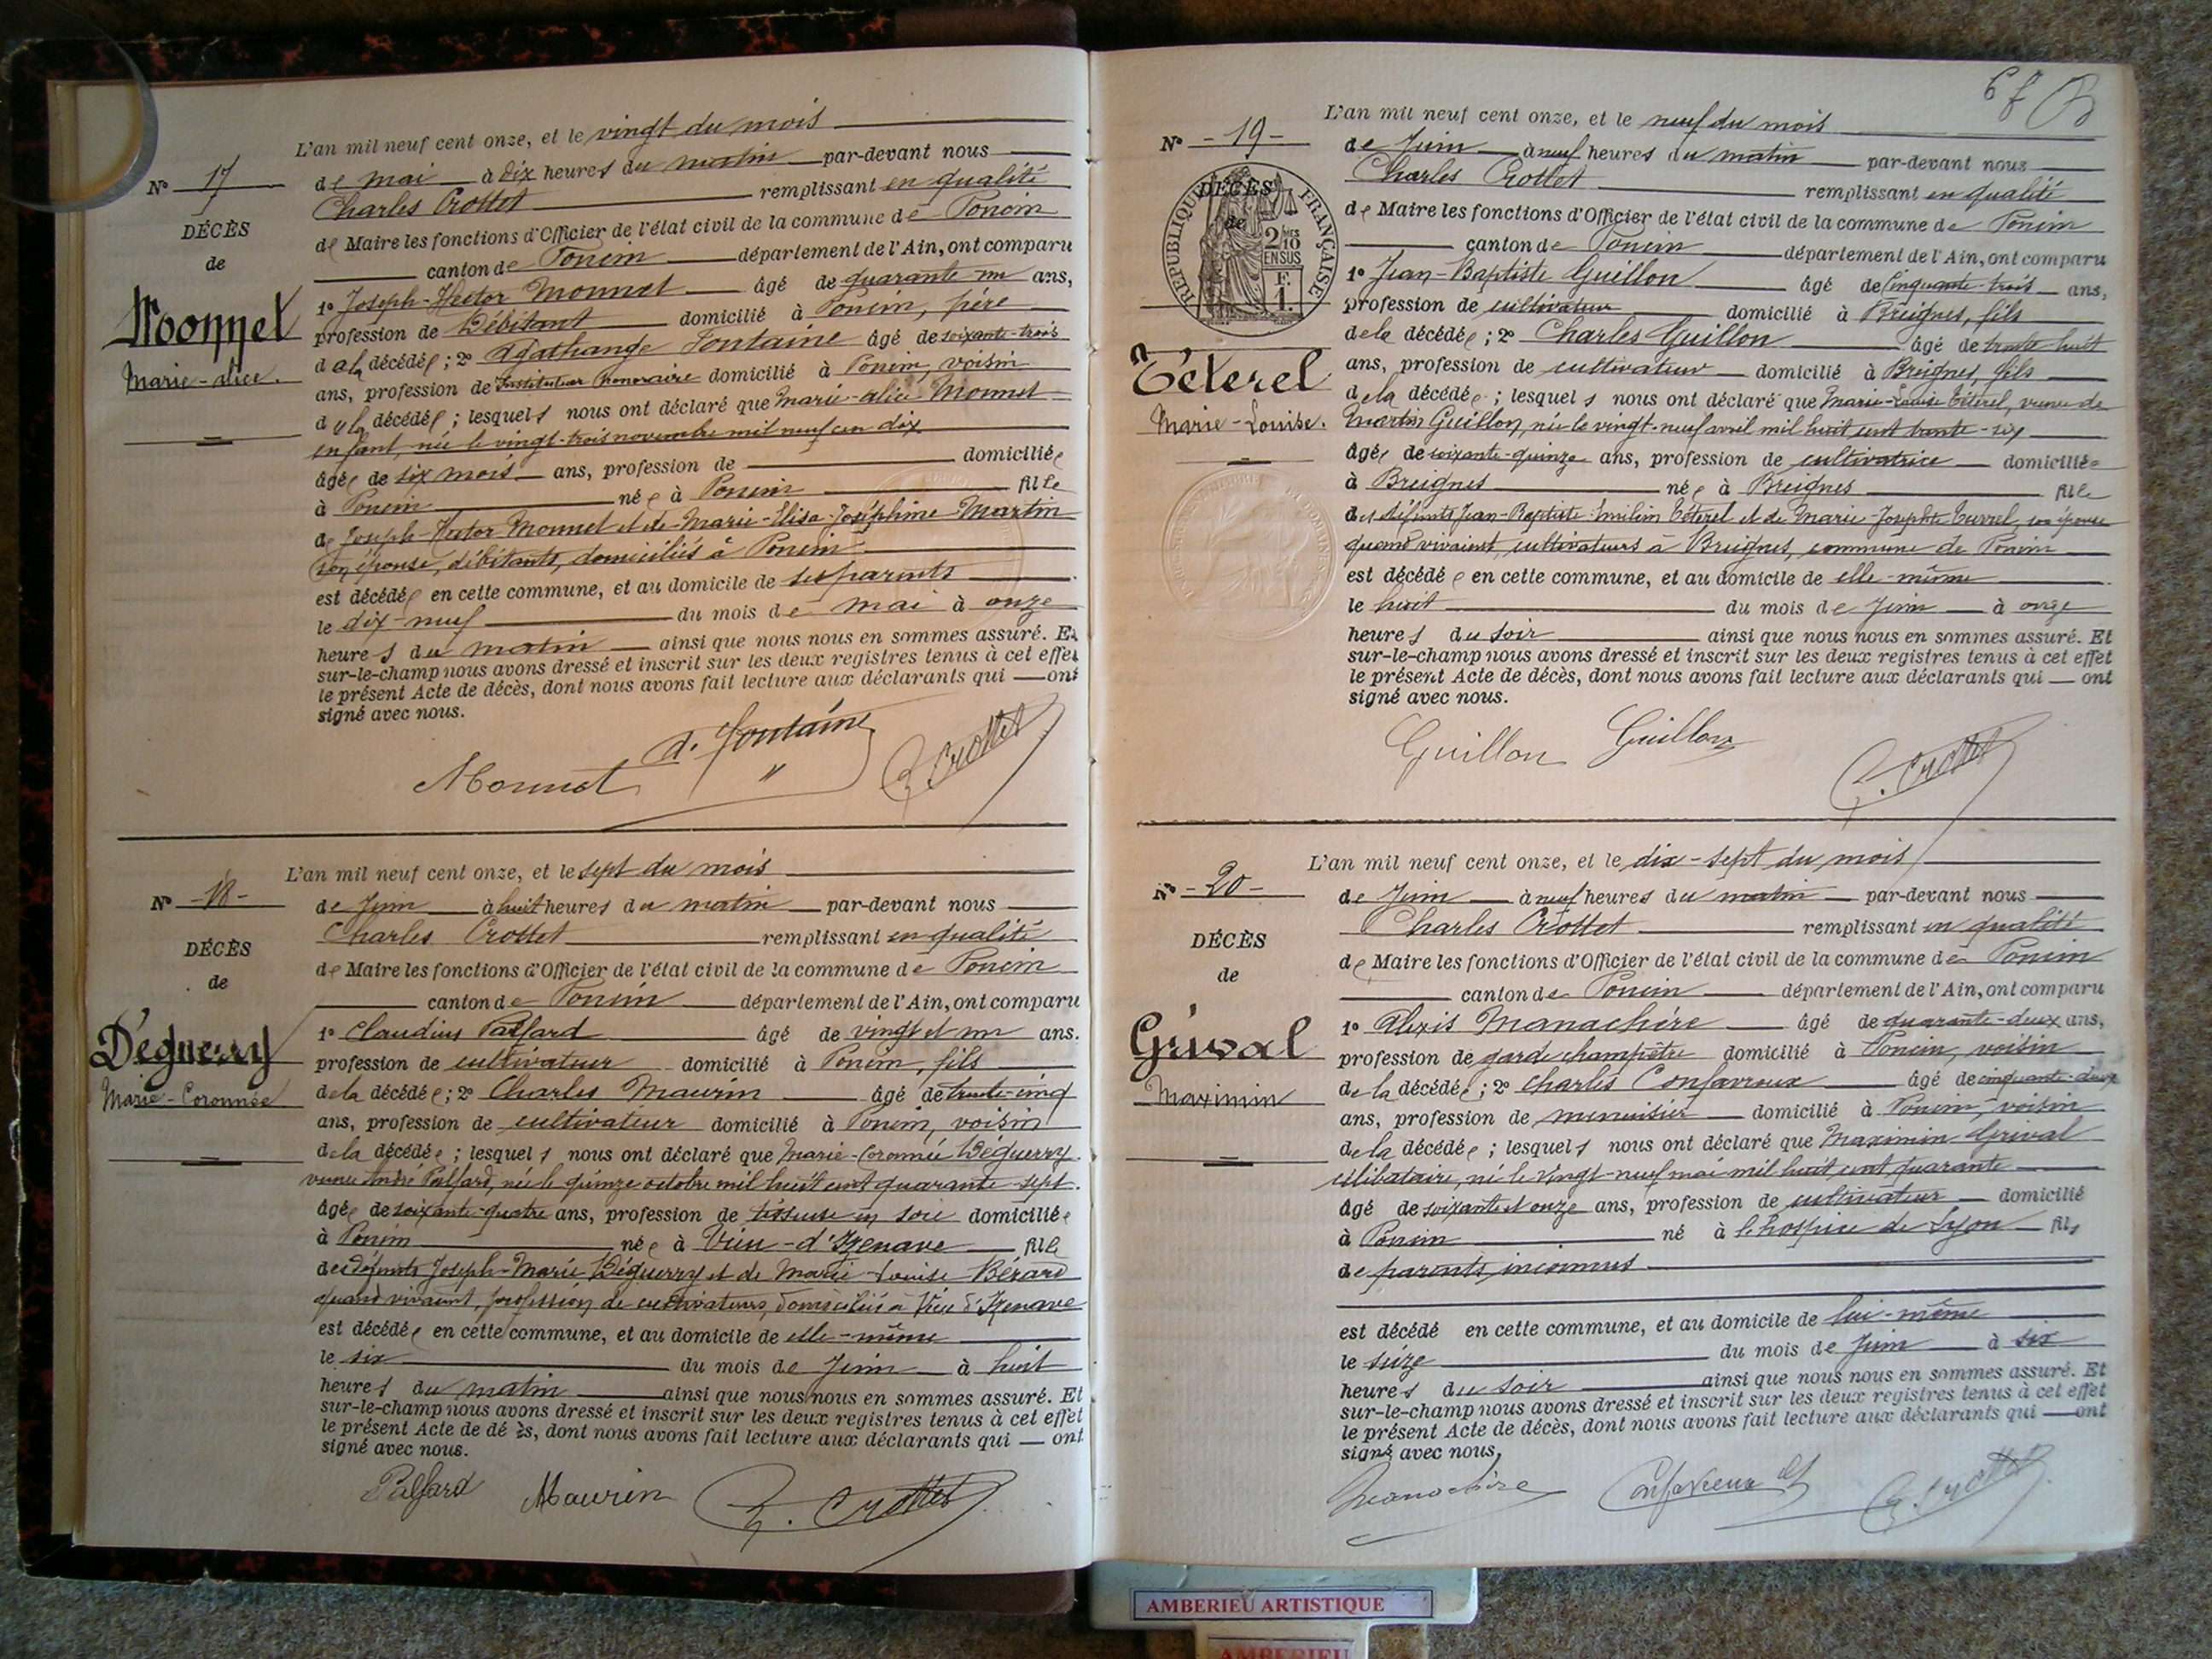 L'an mil neuf cent onze, et le vingt du mois
N° 17
de mai à dix heures du matin par-devant nous
Charles Crottet remplissant en qualité
DÉCÈS
de Maire les fonctions d'Officier de l'état civil de la commune de Poncin
de
canton de Poncin département de l'Ain, ont comparu
Monnet
1° Joseph-Hector Monnet âgé de quarante-un ans,
profession de Débitant domicilié à Poncin, père
Marie-alice.
de la décédée; 2° Agathange Fontaine âgé de soixante-trois
ans, profession de Instituteur honoraire domicilié à Poncin, voisin
de la décédée; lesquels nous ont déclaré que Marie-alice Monnet
enfant, née le vingt-trois novembre mil neuf cen dix
âgée de six mois ans, profession de domiciliée
à Poncin née à Poncin fille
de Joseph-Hector Monnet et de Marie-Elisa-Joséphine Martin
son épouse, débitants, domiciliés à Poncin
est décédée en cette commune, et au domicile de ses parents
le dix-neuf du mois de mai à onze
heures du matin ainsi que nous nous en sommes assuré. Et
sur-le-champ nous avons dressé et inscrit sur les deux registres tenus à cet effet
le présent Acte de décès, dont nous avons fait lecture aux déclarants qui ont
signé avec nous.
Monnet A. Fontaine C. Crottet
L'an mil neuf cent onze, et le sept du mois
N° -18-
de Juin à huit heures du matin par-devant nous
Charles Crottet remplissant en qualité
DÉCÈS
de Maire les fonctions d'Officier de l'état civil de la commune de Poncin
de
canton de Poncin département de l'Ain, ont comparu
Déguerry
1° Claudius Palfard âgé de vingt et un ans.
profession de cultivateur domicilié à Poncin, fils
Marie-Coronnée
de la décédée; 2° Charles Maurin âgé de trente-cinq
ans, profession de cultivateur domicilié à Poncin, voisin
de la décédée; lesquels nous ont déclaré que Marie-Coronnée Déguerry
veuve André Palfard, née le quinze octobre mil huit cent quarante-sept.
âgée de soixante-quatre ans, profession de tisseuse en soie domiciliée
à Poncin née à Vieu-d'Izenave fille
des défunts Joseph-Marie Déguerry et de Marie-Louise Bérard
quand vivaient, profession de cultivateurs, domiciliés à Vieu d'Izenave
est décédée en cette commune, et au domicile de elle-même
le six du mois de Juin à huit
heures du matin ainsi que nous nous en sommes assuré. Et
sur-le-champ nous avons dressé et inscrit sur les deux registres tenus à cet effet
le présent Acte de dé ès, dont nous avons fait lecture aux déclarants qui ont
signé avec nous.
Palfard Maurin C. Crottet
6 f
L'an mil neuf cent onze, et le neuf du mois
N° -19-
de Juin à neuf heures du matin par-devant nous
Charles Crottet remplissant en qualité
DÉCÈS
de
RÉPUBLIQUE FRANÇAISE
2/10 EN SUS
F. 1.
de Maire les fonctions d'Officier de l'état civil de la commune de Poncin
canton de Poncin département de l'Ain, ont comparu
1° Jean-Baptiste Guillon âgé de cinquante-trois ans,
profession de cultivateur domicilié à Breignes, fils
Téterel
de la décédée; 2° Charles Guillon âgé de trente-huit
ans, profession de cultivateur domicilié à Breignes, fils
Marie-Louise.
de la décédée; lesquels nous ont déclaré que Marie-Louise Téterel, veuve de
Martin Guillon, née le vingt-neuf avril mil huit cent trente-six
âgée de soixante-quinze ans, profession de cultivatrice domiciliée
à Breignes née à Breignes fille
des défunts Jean-Baptiste Emilien Téterel et de Marie-Josephte son épouse
quand vivaient, cultivateurs à Breignes, commune de Poncin
est décédée en cette commune, et au domicile de elle-même
le huit du mois de Juin à onze
heures du soir ainsi que nous nous en sommes assuré. Et
sur-le-champ nous avons dressé et inscrit sur les deux registres tenus à cet effet
le présent Acte de décès, dont nous avons fait lecture aux déclarants qui ont
signé avec nous.
Guillon Guillon C. Crottet
L'an mil neuf cent onze, et le dix-sept du mois
N° -20-
de Juin à neuf heures du matin par-devant nous
Charles Crottet remplissant en qualité
DÉCÈS
de Maire les fonctions d'Officier de l'état civil de la commune de Poncin
de
canton de Poncin département de l'Ain, ont comparu
Grival
1° Alexis Manachère âgé de quarante-deux ans,
profession de garde champêtre domicilié à Poncin, voisin
Maximin
de la décédée; 2° Charles Confavreux âgé de cinquante-deux
ans, profession de menuisier domicilié à Poncin, voisin
de la décédée; lesquels nous ont déclaré que Maximin Grival
célibataire, né le vingt-neuf mai mil huit cent quarante
âgé de soixante et onze ans, profession de cultivateur domicilié
à Poncin né à l'hospice de Lyon fils
de parents inconnus
est décédé en cette commune, et au domicile de lui-même
le seize du mois de Juin à six
heures du soir ainsi que nous nous en sommes assuré. Et
sur-le-champ nous avons dressé et inscrit sur les deux registres tenus à cet effet
le présent Acte de décès, dont nous avons fait lecture aux déclarants qui ont
signé avec nous,
Manachère Confavreux C. Crottet
AMBERIEU ARTISTIQUE
AMBERIEU